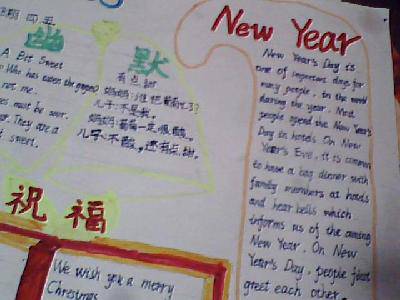 幽
默
A Bit Sweet
Who has eaten the grapes?
not me.
must be sour.
They are a
sweet.
有点甜
妈妈:谁把葡萄吃了?
儿子:不是我。
妈妈:葡萄一定很酸。
儿子:不酸,还有点甜。
祝福
We wish you a merry
Christmas
New Year
New Year's Day is
one of important days for
many people in the world
during the year. Most
people spend the New Year's
Day in hotels. On New
Year's Eve, it is common
to have a big dinner with
family members at hotels
and hear bells which
informs us of the coming
New Year. On New
Year's Day, people just
greet each other.